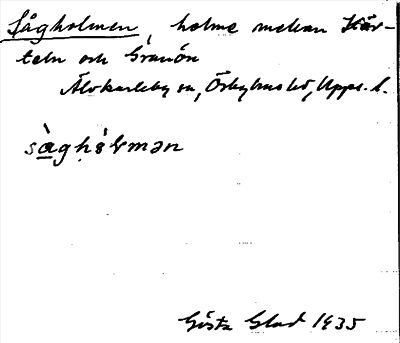 Sågholmen, holme mellan Kar-
teln och Granön
Älvkarleby sn, Örbyhus hd, Upps. l.
Gösta Glad 1935